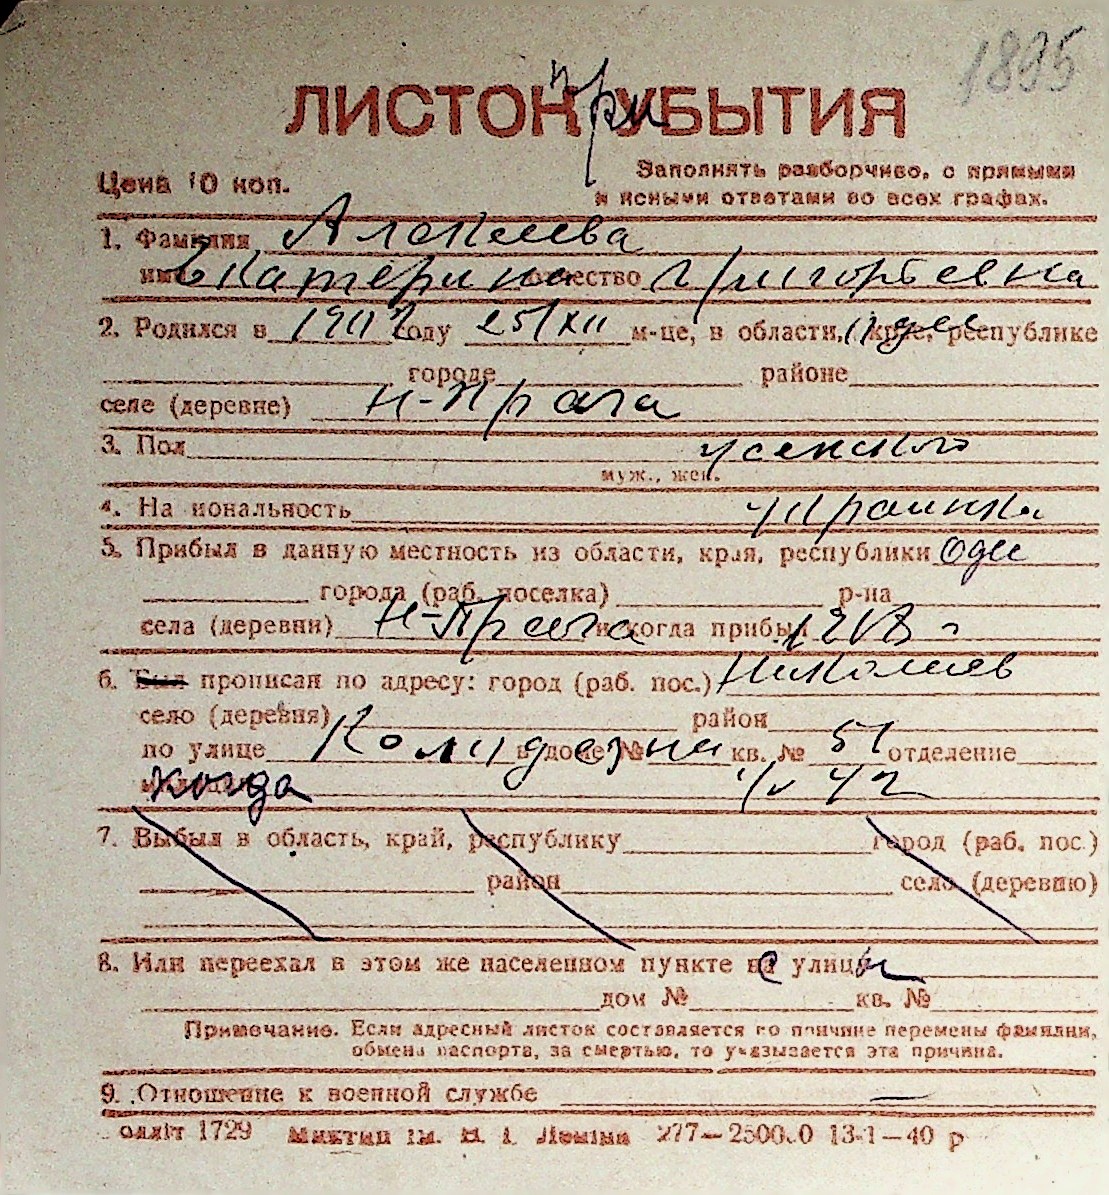 1895
ЛИСТОК при УБЫТИЯ
Цена 10 коп.
Заполнять разборчиво, с прямыми
и ясными ответами во всех графах.
1. Фамилия Алексеева
имя Екатерина отчество Григорьевна
2. Родился в году 25/XII м-це, в области, крае, республике
городе районе
селе (деревне) Н-Прага
3. Пол женского
муж., жен.
4. На иональность украинка
5. Прибыл в данную местность из области, края, республики Одес
города (раб. поселка) р-на
села (деревни) Н-Прага и когда прибыл
6. Был прописан по адресу: город (раб. пос.) Николаев
село (деревня) район
по улице в доме № кв. № 51 отделение
когда
7. Выбыл в область, край, республику город (раб. пос.)
район село (деревню)
8. Или переехал в этом же населенном пункте с улицы
дом № кв. №
Примечание. Если адресный листок составляется по причине перемены фамилии,
обмена паспорта, за смертью, то указывается эта причина.
9. Отношение к военной службе —
олліт 1729 ім. Леніна 277—250000 13-1—40 р